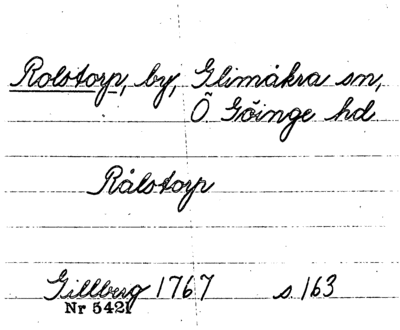 Rolstorp, by, Glimåkra sn,
Ö Göinge hd
Rålstorp
Gillberg 1767 s 163
Nr 5421